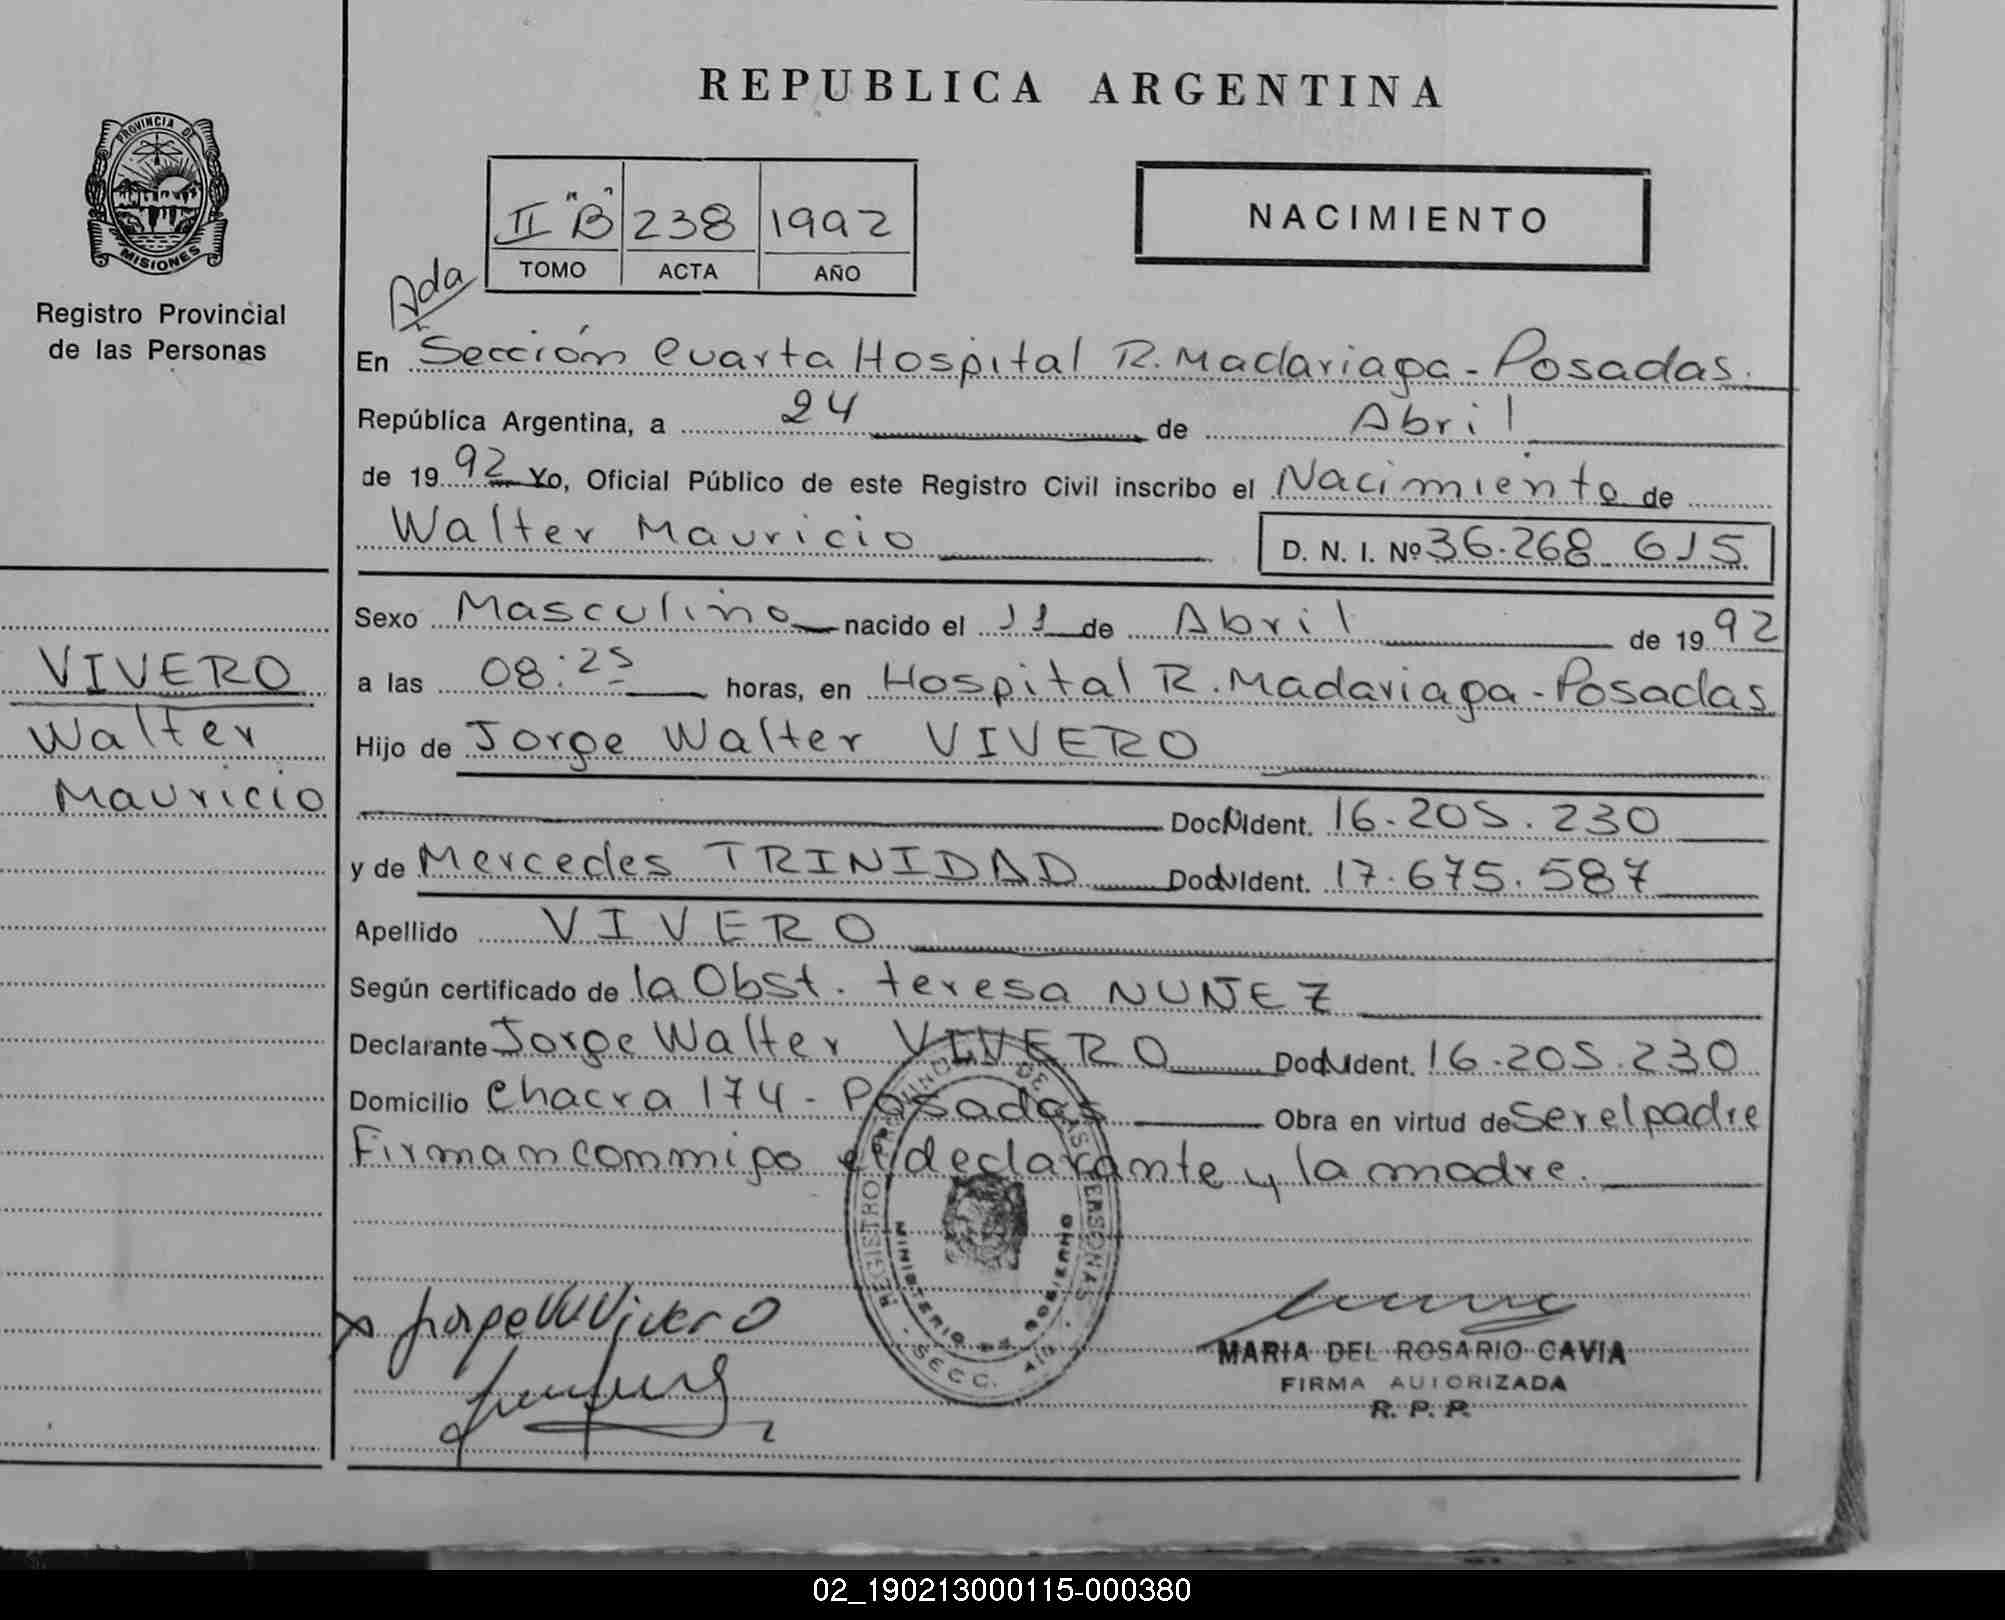 REPUBLICA ARGENTINA
PROVINCIA DE
MISIONES
Registro Provincial
de las Personas
II "B" 238 1992
TOMO ACTA AÑO
NACIMIENTO
Ada
En Sección Cuarta Hospital R. Madariaga - Posadas.
República Argentina, a 24 de Abril
de 1992 Yo, Oficial Público de este Registro Civil inscribo el Nacimiento de
Walter Mauricio D. N. I. Nº 36.268 615
Sexo Masculino nacido el 11 de Abril de 1992
VIVERO
Walter
Mauricio
a las 08:25 horas, en Hospital R. Madariaga - Posadas
Hijo de Jorge Walter VIVERO
Doc N Ident. 16.205.230
y de Mercedes TRINIDAD Doc N Ident. 17.675.587
Apellido VIVERO
Según certificado de la Obst. teresa NUÑEZ
Declarante Jorge Walter VIVERO Doc N Ident. 16.205.230
Domicilio Chacra 174 - Posadas Obra en virtud de Ser el padre
Firman conmigo el declarante y la madre.
REGISTRO PROVINCIAL DE LAS PERSONAS
MINISTERIO DE GOBIERNO
SECC. 4ta
Jorge W Vivero
MARIA DEL ROSARIO CAVIA
FIRMA AUTORIZADA
R. P. P.
02_190213000115-000380